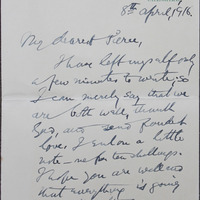 8th April, 1916.
My dearest Pierce,
I have left myself only
a few minutes to write so
I can merely say that we
are both well, thank
God, and send fondest
love. I enclose a little
note - one for ten shillings.
I hope you are well and
that everything is going